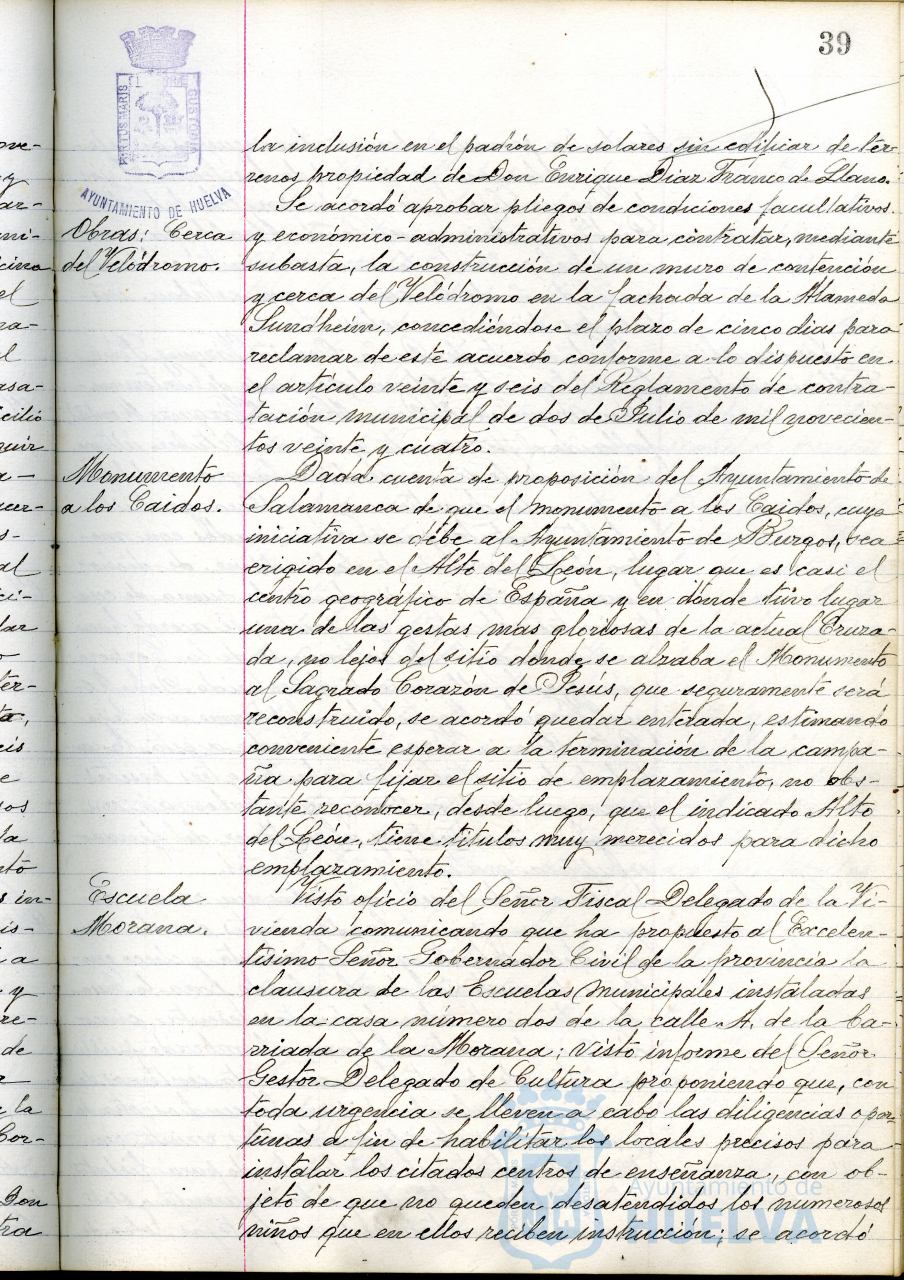 39
PORTUS MARIS
CUSTODIA
AYUNTAMIENTO DE HUELVA
la inclusión en el padrón de solares sin edificar de ter-
renos propiedad de Don Enrique Diaz Franco de Llano.
Obras: Cerca
del Velódromo.
Se acordó aprobar pliegos de condiciones facultativos
y económico-administrativos para contratar, mediante
subasta, la construcción de un muro de contención
y cerca del Velódromo en la fachada de la Alameda
Sundheim, concediéndose el plazo de cinco dias para
reclamar de este acuerdo conforme a lo dispuesto en
el artículo veinte y seis del Reglamento de contra-
tación municipal de dos de Julio de mil novecien-
tos veinte y cuatro.
Monumento
a los Caidos.
Dada cuenta de proposición del Ayuntamiento de
Salamanca de que el monumento a los Caidos, cuya
iniciativa se débe al Ayuntamiento de Burgos, sea
erigido en el Alto del León, lugar que es casi el
centro geográfico de España y en dónde tuvo lugar
una de las gestas mas gloriosas de la actual Cruza-
da, no lejos del sitio donde se alzaba el Monumento
al Sagrado Corazón de Jesús, que seguramente será
reconstruido, se acordó quedar enterada, estimando
conveniente esperar a la terminación de la campa-
ña para fijar el sitio de emplazamiento, no obs-
tante reconocer, desde luego, que el indicado Alto
del León, tiene titulos muy merecidos para dicho
emplazamiento.
Escuela
Morana.
Visto oficio del Señor Fiscal Delegado de la Vi-
vienda comunicando que ha propuesto al Excelen-
tísimo Señor Gobernador Civil de la provincia la
clausura de las Escuelas Municipales instaladas
en la casa número dos de la calle A. de la Ba-
rriada de la Morana; visto informe del Señor
Gestor Delegado de Cultura proponiendo que, con
toda urgencia se lleven a cabo las diligencias opor-
tunas a fin de habilitar los locales precisos para
instalar los citados centros de enseñanza, con ob-
jeto de que no queden desatendidos los numerosos
niños que en ellos reciben instrucción; se acordó
Ayuntamiento de
HUELVA